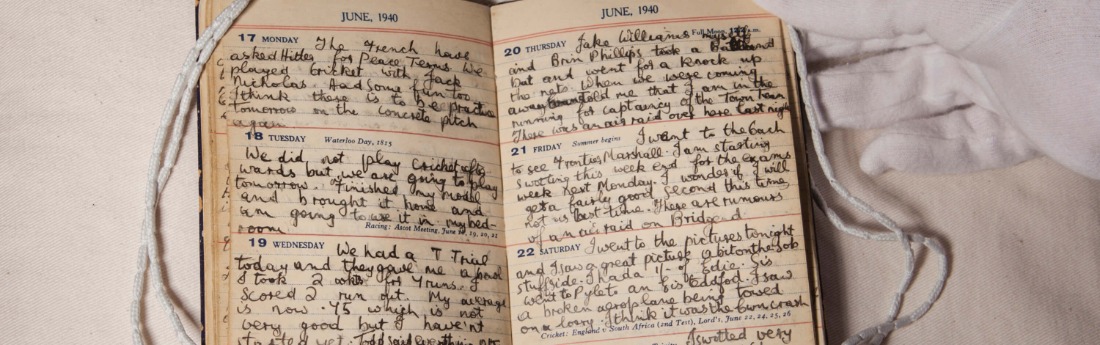 JUNE, 1940
17 MONDAY The French have
asked Hitler for Peace Terms. We
played cricket with Jack
Nicholas. Had some fun too.
I think there is to be practice
tomorrow on the concrete pitch
again
18 TUESDAY Waterloo Day, 1815
We did not play cricket after-
wards but we are going to play
tomorrow. Finished my model
and brought it home and
am going to use it in my bed-
room. Racing: Ascot Meeting, June 18, 19, 20, 21
19 WEDNESDAY We had a T Trial
today and they gave me a bowl
I took 2 wkts for 4 runs. I
scored 2 run out. My average
is now .45 which is not
very good but I haven't
started yet.
JUNE, 1940
20 THURSDAY Jake Williams myself Full Moon
and Brin Phillips took a Ball and
bat and went for a knock up
the nets. When we were coming
away told me that I am in the
running for captaincy of the Town Team
There was an air raid over here last night
21 FRIDAY Summer begins I went to the Gach
to see Fronties Marshall. I am starting
swotting this week end for the exams
week next Monday. I wonder if I will
get a fairly good second this time
not us last time. There are rumours
of an air raid on Bridgend.
22 SATURDAY I went to the pictures tonight
and I saw a great picture a bit on the sob
stuff side. I had a 1/- of Edie. Sis
went to Pyle to an Eisteddfod. I saw
a broken aeroplane being towed
on a lorry. I think it was the crash
Cricket: England v South Africa (2nd Test), Lord's, June 22, 24, 25, 26
I swotted very